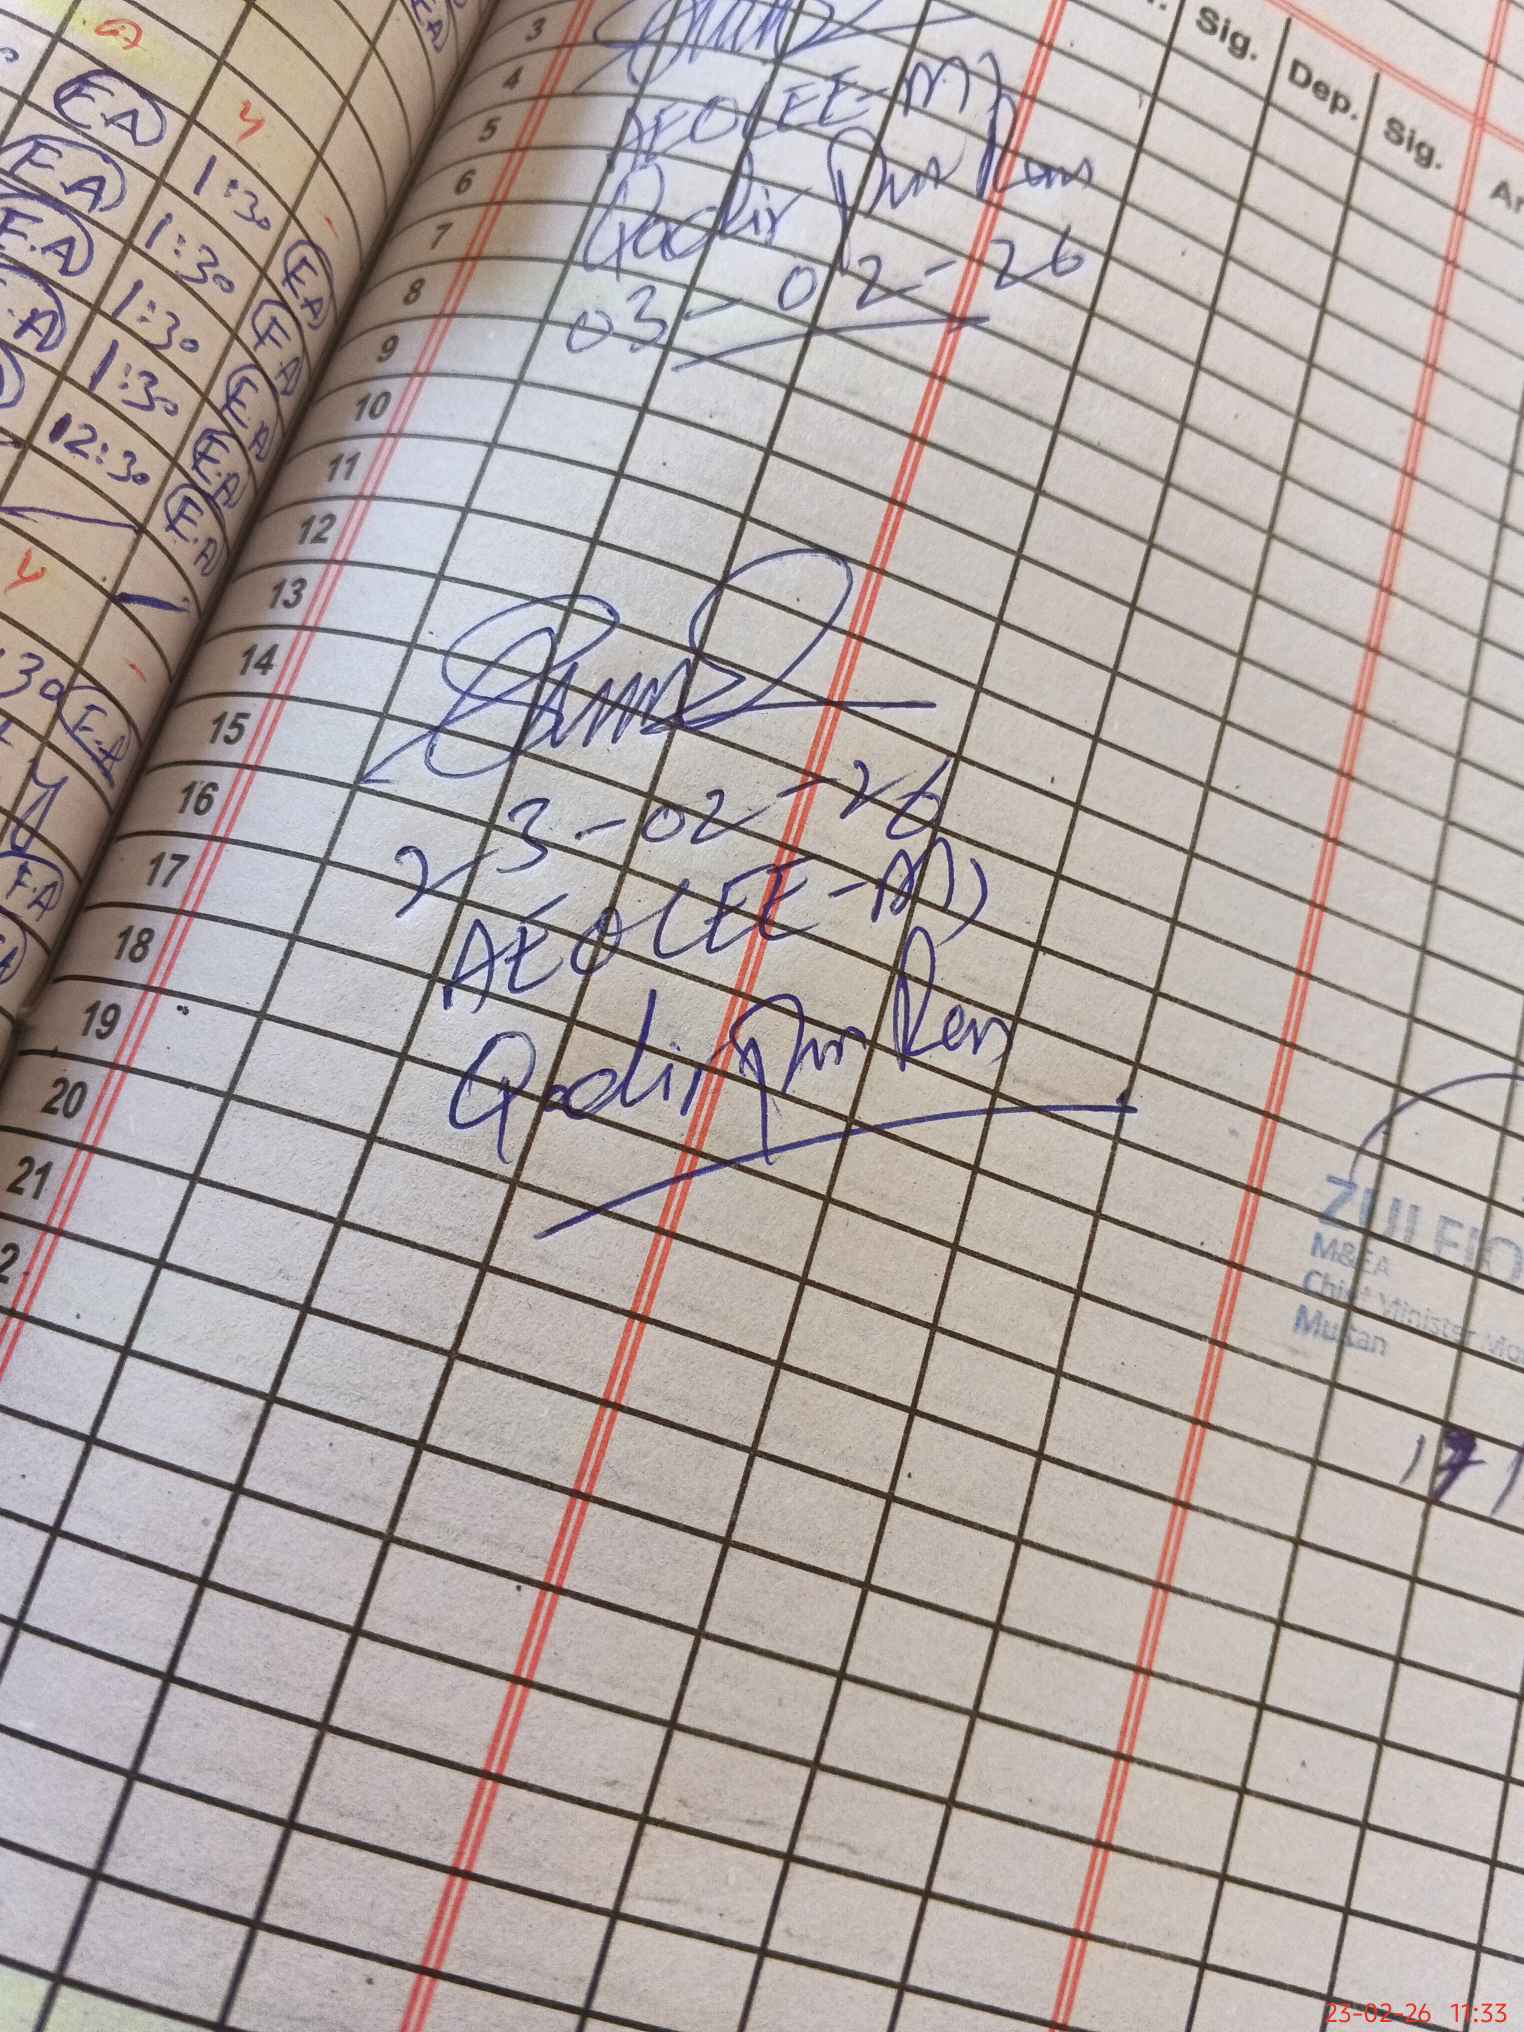 E.A
E.A
E.A
E.A
1:30
1:30
1:30
1:30
12:30
F.A
F.A
F.A
F.A
F.A
F.A
F.A
Sig.
Dep.
Sig.
3
4
5
6
7
8
9
10
11
12
13
14
15
16
17
18
19
20
21
AEO(EE-M)
Qadir Pur Ran
03-02-26
23-02-26
AEO(EE-M)
Qadir Pur Ran
M&EA
Chief Minister
Multan
23-02-26 11:33